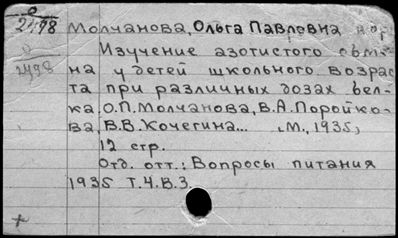 О
2498 Молчанова, Ольга Павловна и др.
Изучение азотистого обме-
О
2498
на у детей школьного возрас
та при различных дозах бел-
ка. О.П.Молчанова, В.А.Поройко-
ва, В.В.Кочегина... М., 1935,
12 стр.
Отд. отт.: Вопросы питания
1935 Т.4.В.3.